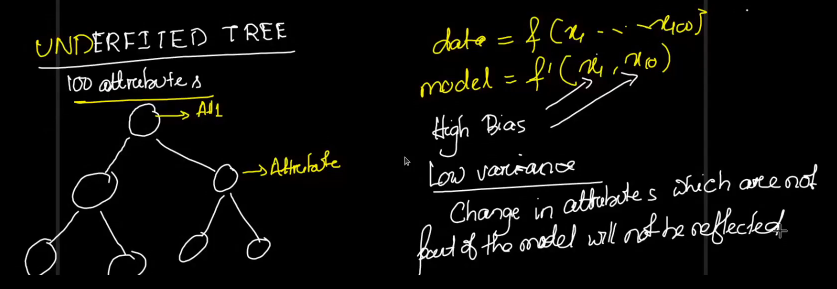 UNDERFITED TREE
100 attributes
Att1
Attribute
data = f(x1 ... x100)
model = f'(x1, x10)
High Bias
Low variance
Change in attributes which are not
part of the model will not be reflected